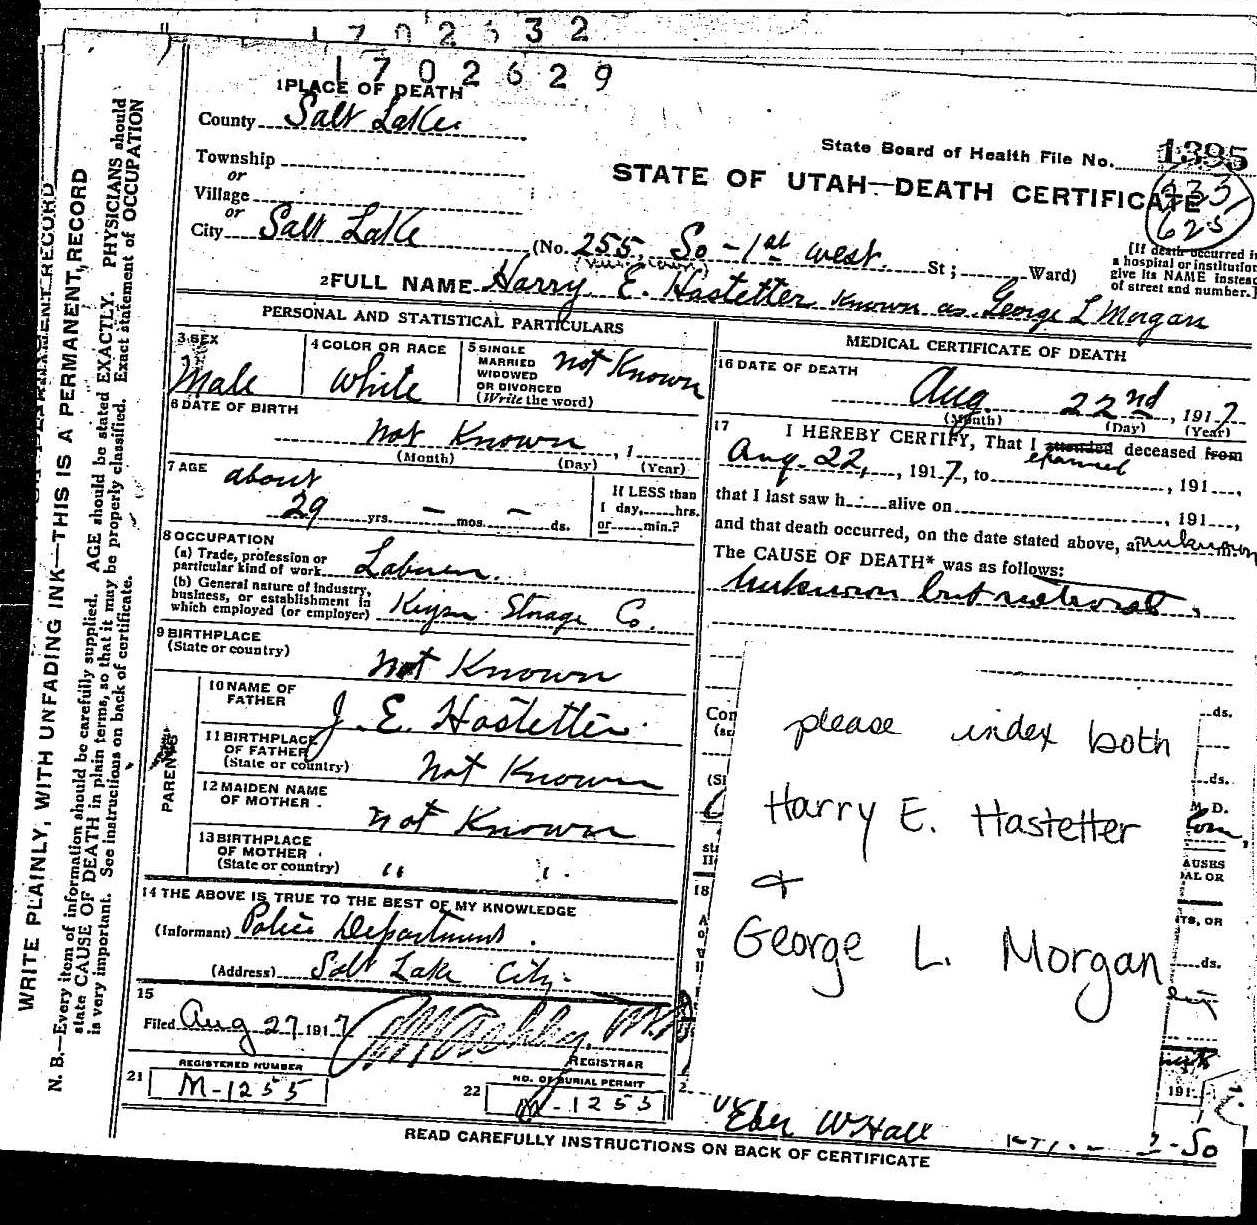 1702632
1702629
1 PLACE OF DEATH
County Salt Lake
State Board of Health File No. 1395
Township
or
STATE OF UTAH—DEATH CERTIFICATE
Village
or
City Salt Lake (No. 255 So - 1st west St; Ward)
625
(If death occurred in
a hospital or institution
give its NAME instead
of street and number.)
2 FULL NAME Harry E. Hastetter known as George L Morgan
PERSONAL AND STATISTICAL PARTICULARS
3 SEX
Male
4 COLOR OR RACE
White
5 SINGLE
MARRIED
WIDOWED
OR DIVORCED
(Write the word)
not Known
6 DATE OF BIRTH
not Known , 1
(Month) (Day) (Year)
7 AGE
about
29 yrs. — mos. — ds.
If LESS than
1 day, hrs.
or min.?
8 OCCUPATION
(a) Trade, profession or
particular kind of work
Laborer.
(b) General nature of industry,
business, or establishment in
which employed (or employer)
Storage Co.
9 BIRTHPLACE
(State or country)
Not Known
PARENTS
10 NAME OF
FATHER
J. E. Hastetter
11 BIRTHPLACE
OF FATHER
(State or country)
not Known
12 MAIDEN NAME
OF MOTHER
not Known
13 BIRTHPLACE
OF MOTHER
(State or country)
" "
14 THE ABOVE IS TRUE TO THE BEST OF MY KNOWLEDGE
(Informant) Police Department.
(Address) Salt Lake City.
15
Filed Aug 27 1917
REGISTRAR
REGISTERED NUMBER
21 M-1255
NO. OF BURIAL PERMIT
22 M-1255
MEDICAL CERTIFICATE OF DEATH
16 DATE OF DEATH
Aug. 22nd, 1917
(Month) (Day) (Year)
17 I HEREBY CERTIFY, That I attended deceased from
examined
Aug. 22, , 1917, to , 191 ,
that I last saw h alive on , 191 ,
and that death occurred, on the date stated above, at unknown m
The CAUSE OF DEATH* was as follows:
Unknown but natural.
please index both
Harry E. Hastetter
+
George L. Morgan
ds.
ds.
M. D.
18
ds.
191
Eber W Hall
READ CAREFULLY INSTRUCTIONS ON BACK OF CERTIFICATE
WRITE PLAINLY, WITH UNFADING INK—THIS IS A PERMANENT RECORD
N. B.—Every item of information should be carefully supplied. AGE should be stated EXACTLY. PHYSICIANS should
state CAUSE OF DEATH in plain terms, so that it may be properly classified. Exact statement of OCCUPATION
is very important. See instructions on back of certificate.